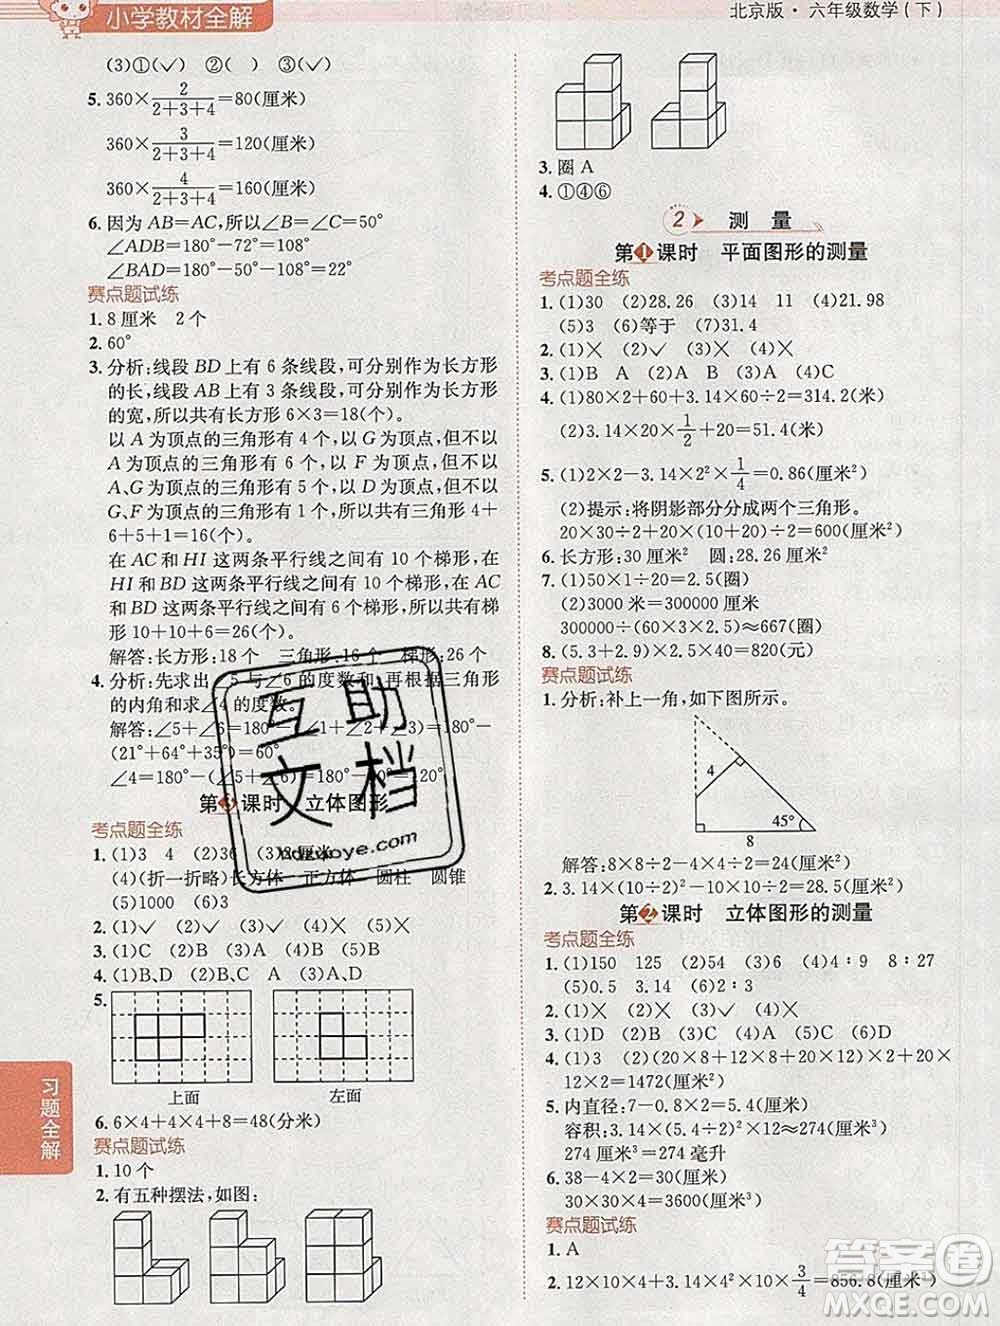 小学教材全解
北京版·六年级数学(下)
(3)①(✓) ②( ) ③(✓)
5. 360×2/(2+3+4)=80(厘米)
360×3/(2+3+4)=120(厘米)
360×4/(2+3+4)=160(厘米)
6. 因为AB=AC,所以∠B=∠C=50°
∠ADB=180°-72°=108°
∠BAD=180°-50°-108°=22°
赛点题试练
1. 8厘米 2个
2. 60°
3. 分析:线段BD上有6条线段,可分别作为长方形
的长,线段AB上有3条线段,可分别作为长方形
的宽,所以共有长方形6×3=18(个)。
以A为顶点的三角形有4个,以G为顶点,但不以
A为顶点的三角形有6个,以F为顶点,但不以
A、G为顶点的三角形有5个,以D为顶点,但不以
G、F为顶点的三角形有1个,所以共有三角形4+
6+5+1=16(个)。
在AC和HI这两条平行线之间有10个梯形,在
HI和BD这两条平行线之间有10个梯形,在AC
和BD这两条平行线之间有6个梯形,所以共有梯
形10+10+6=26(个)。
解答:长方形:18个 三角形:16个 梯形:26个
4. 分析:先求出∠5与∠6的度数和,再根据三角形
的内角和求∠4的度数。
解答:∠5+∠6=180°-(∠1+∠2+∠3)=180°-
(21°+64°+35°)=60°
∠4=180°-(∠5+∠6)=180°-60°=120°
第3课时 立体图形
考点题全练
1. (1)3 4 (2)36 (3)8厘米
(4)(折一折略)长方体 正方体 圆柱 圆锥
(5)1000 (6)3
2. (1)✓ (2)✓ (3)✓ (4)×
3. (1)C (2)B (3)A (4)B
4. (1)B,D (2)B,C A (3)B,D
5.
上面 左面
6. 6×4+4×4+8=48(分米)
赛点题试练
1. 10个
2. 有五种摆法,如图:
3. 圈A
4. ①④⑥
2 测 量
第1课时 平面图形的测量
考点题全练
1. (1)30 (2)28.26 (3)14 11 (4)21.98
(5)3 (6)等于 (7)31.4
2. (1)× (2)✓ (3)× (4)×
3. (1)B A (2)B (3)A (4)C
4. (1)80×2+60+3.14×60÷2=314.2(米)
(2)3.14×20×1/2+20=51.4(米)
5. (1)2×2-3.14×2²×1/4=0.86(厘米²)
(2)提示:将阴影部分分成两个三角形。
20×30÷2+20×(10+20)÷2=600(厘米²)
6. 长方形:30厘米² 圆:28.26厘米²
7. (1)50×1÷20=2.5(圈)
(2)3000米=300000厘米
300000÷(60×3×2.5)≈667(圈)
8. (5.3+2.9)×2.5×40=820(元)
赛点题试练
1. 分析:补上一角,如下图所示。
4
45°
8
解答:8×8÷2-4×4÷2=24(厘米²)
2. 3.14×(10÷2)²-10×10÷2=28.5(厘米²)
第2课时 立体图形的测量
考点题全练
1. (1)150 125 (2)54 (3)6 (4)4∶9 8∶27
(5)0.5 3.14 (6)2∶3
2. (1)× (2)✓ (3)✓ (4)×
3. (1)D (2)B (3)D (4)A (5)C (6)D
4. (1)3 (2)(20×8+20×12+8×12)×2+8×
12×5=1472(厘米²)
5. 内直径:7-0.8×2=5.4(厘米)
容积:3.14×(5.4÷2)²×12≈274(厘米³)
274厘米³=274毫升
6. 38-4×2=30(厘米)
30×30×4=3600(厘米²)
赛点题试练
1. A
2. 12×10×10-3.14×4²×10×3/4=856.8(厘米³)
习题全解
互助文档
hdzuoye.com
答案圈
MXQE.COM